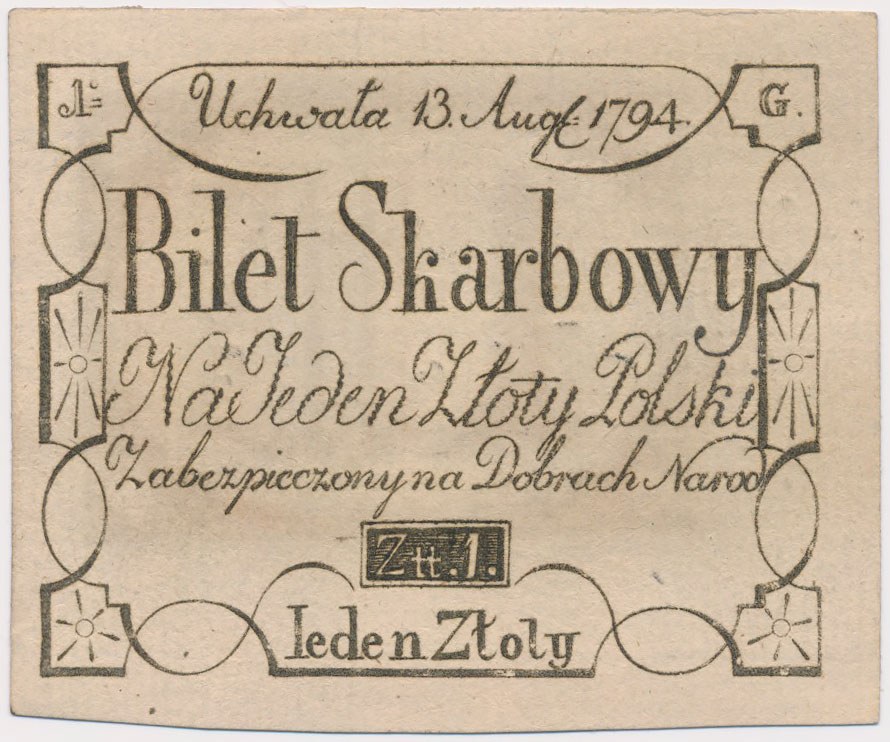 1= G.
Uchwała 13. Augt= 1794.
Bilet Skarbowy
Na Ieden Złoty Polski
Zabezpieczony na Dobrach Narod
Złł.1.
Ieden Złoty